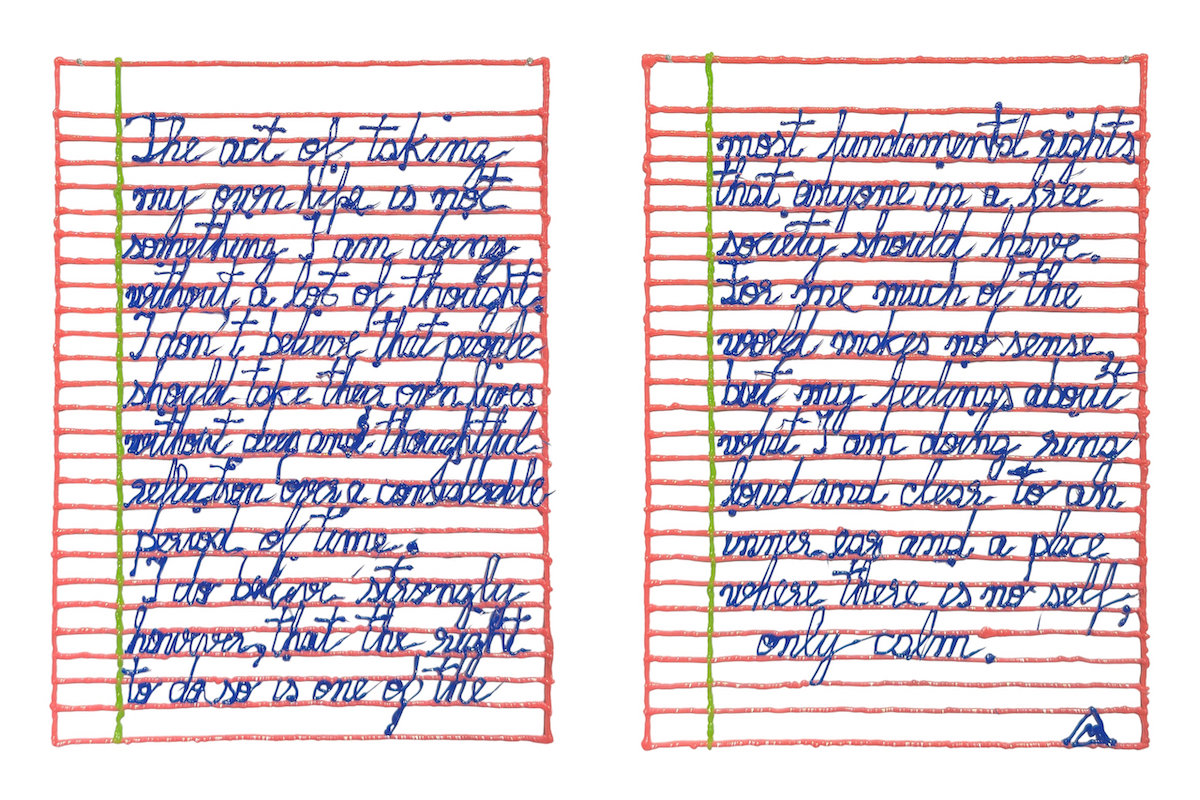 The act of taking
my own life is not
something I am doing
without a lot of thought.
I don't believe that people
should take their own lives
without deep and thoughtful
reflection over a considerable
period of time.
I do believe strongly
however, that the right
to do so is one of the
most fundamental rights
that anyone in a free
society should have.
For me much of the
world makes no sense,
but my feelings about
what I am doing ring
loud and clear to an
inner ear and a place
where there is no self,
only calm.